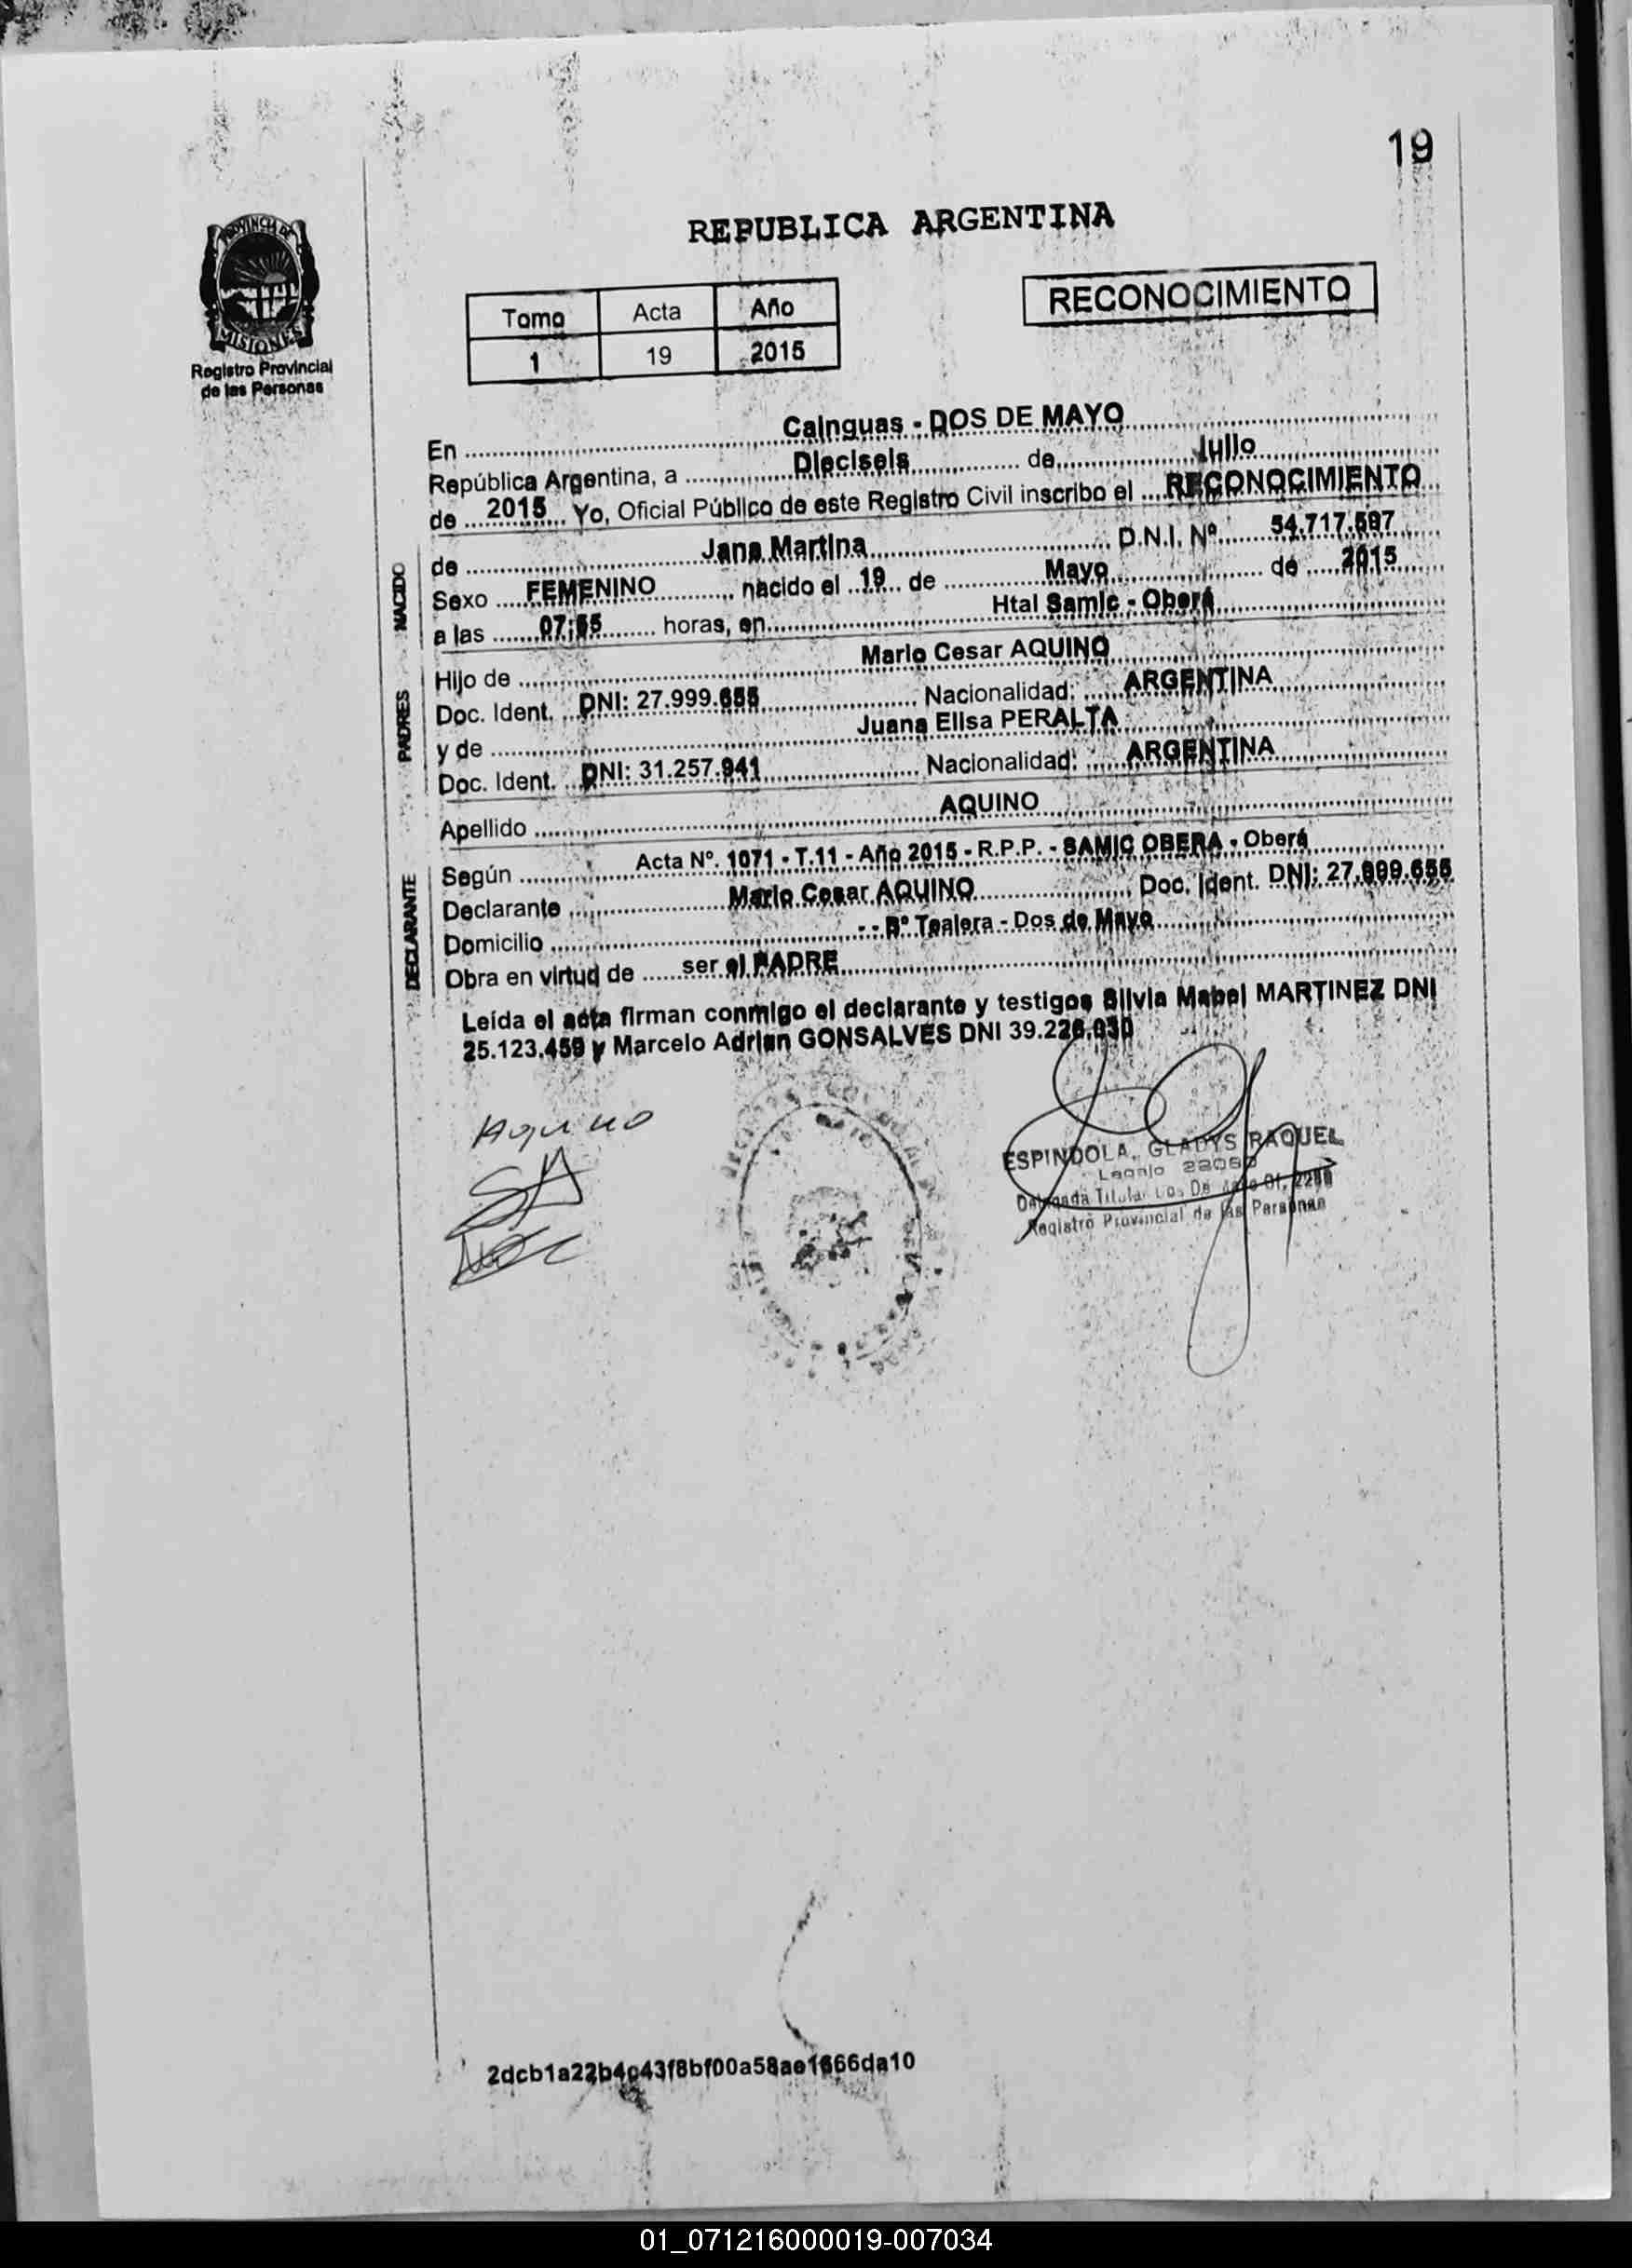 19
PROVINCIA DE
MISIONES
Registro Provincial
de las Personas
REPUBLICA ARGENTINA
Tomo Acta Año
1 19 2015
RECONOCIMIENTO
En Cainguas - DOS DE MAYO
República Argentina, a Dieciseis de Julio
de 2015 Yo, Oficial Público de este Registro Civil inscribo el RECONOCIMIENTO
NACIDO
de Jana Martina D.N.I. Nº 54.717.597
Sexo FEMENINO nacido el 19 de Mayo de 2015
a las 07:55 horas, en Htal Samic - Oberá
PADRES
Hijo de Mario Cesar AQUINO
Doc. Ident. DNI: 27.999.655 Nacionalidad: ARGENTINA
y de Juana Elisa PERALTA
Doc. Ident. DNI: 31.257.941 Nacionalidad: ARGENTINA
Apellido AQUINO
DECLARANTE
Según Acta Nº. 1071 - T.11 - Año 2015 - R.P.P. - SAMIC OBERA - Oberá
Declarante Mario Cesar AQUINO Doc. Ident. DNI: 27.999.655
Domicilio - - Bº Tealera - Dos de Mayo
Obra en virtud de ser el PADRE
Leída el acta firman conmigo el declarante y testigos Silvia Mabel MARTINEZ DNI
25.123.459 y Marcelo Adrian GONSALVES DNI 39.226.030
Aquino
ESPINDOLA, GLADYS RAQUEL
Legajo
Delegada Titular Dos De
Registro Provincial de las Personas
2dcb1a22b4c43f8bf00a58ae1666da10
01_071216000019-007034